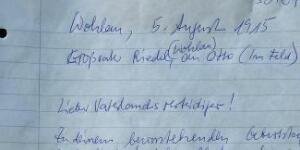 Wohlau, 5. August 1915
Großvater Riedel (Wohlau) an Otto (im Feld)
Lieber Vaterlandsverteidiger!
Zu deinem bevorstehenden Geburtstag